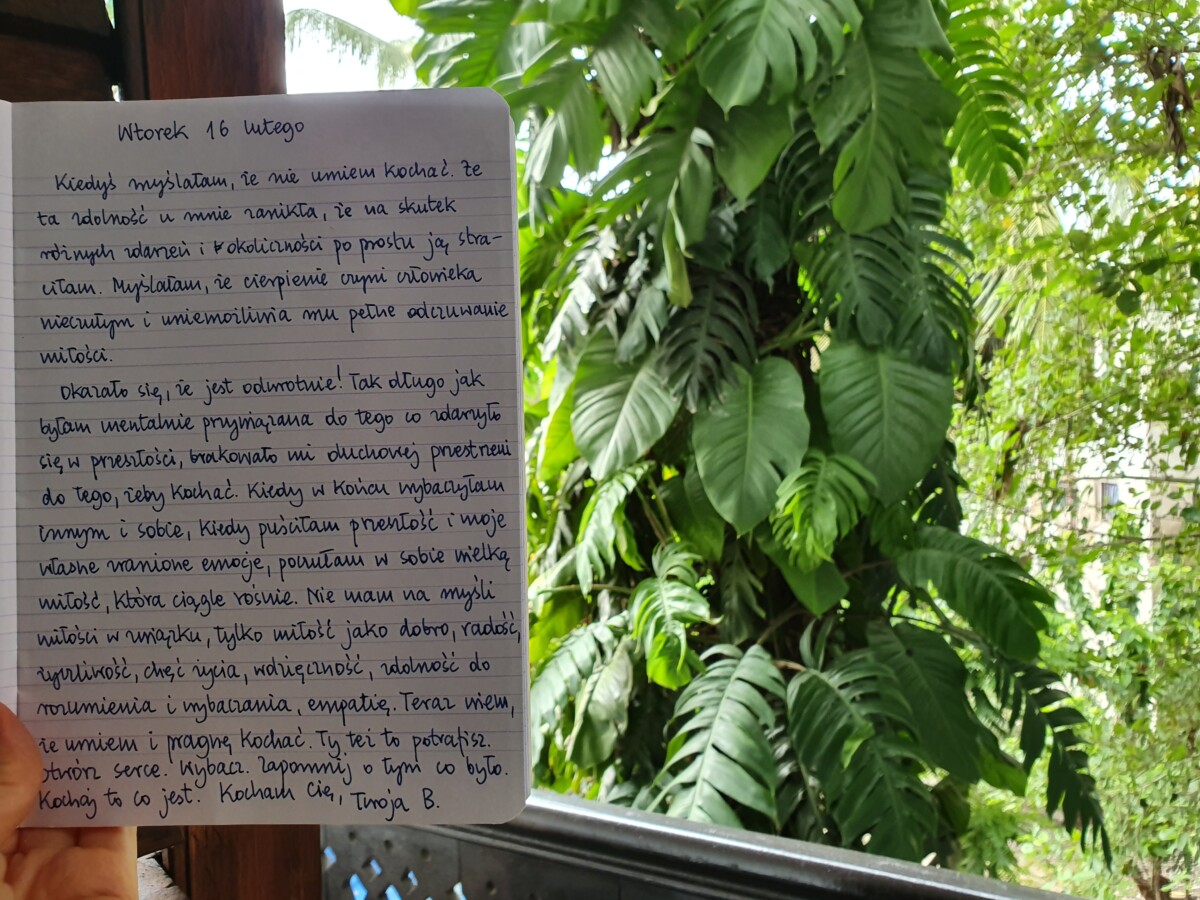 Wtorek 16 lutego
Kiedyś myślałam, że nie umiem kochać. Że
ta zdolność u mnie zanikła, że na skutek
różnych zdarzeń i okoliczności po prostu ją stra-
ciłam. Myślałam, że cierpienie czyni człowieka
nieczułym i uniemożliwia mu pełne odczuwanie
miłości.
Okazało się, że jest odwrotnie! Tak długo jak
byłam mentalnie przywiązana do tego co zdarzyło
się w przeszłości, brakowało mi duchowej przestrzeni
do tego, żeby kochać. Kiedy w końcu wybaczyłam
innym i sobie, kiedy puściłam przeszłość i moje
własne zranione emocje, poczułam w sobie wielką
miłość, która ciągle rośnie. Nie mam na myśli
miłości w związku, tylko miłość jako dobro, radość,
życzliwość, chęć życia, wdzięczność, zdolność do
rozumienia i wybaczania, empatię. Teraz wiem,
że umiem i pragnę kochać. Ty też to potrafisz.
Otwórz serce. Wybacz. Zapomnij o tym co było.
Kochaj to co jest. Kocham Cię, Twoja B.